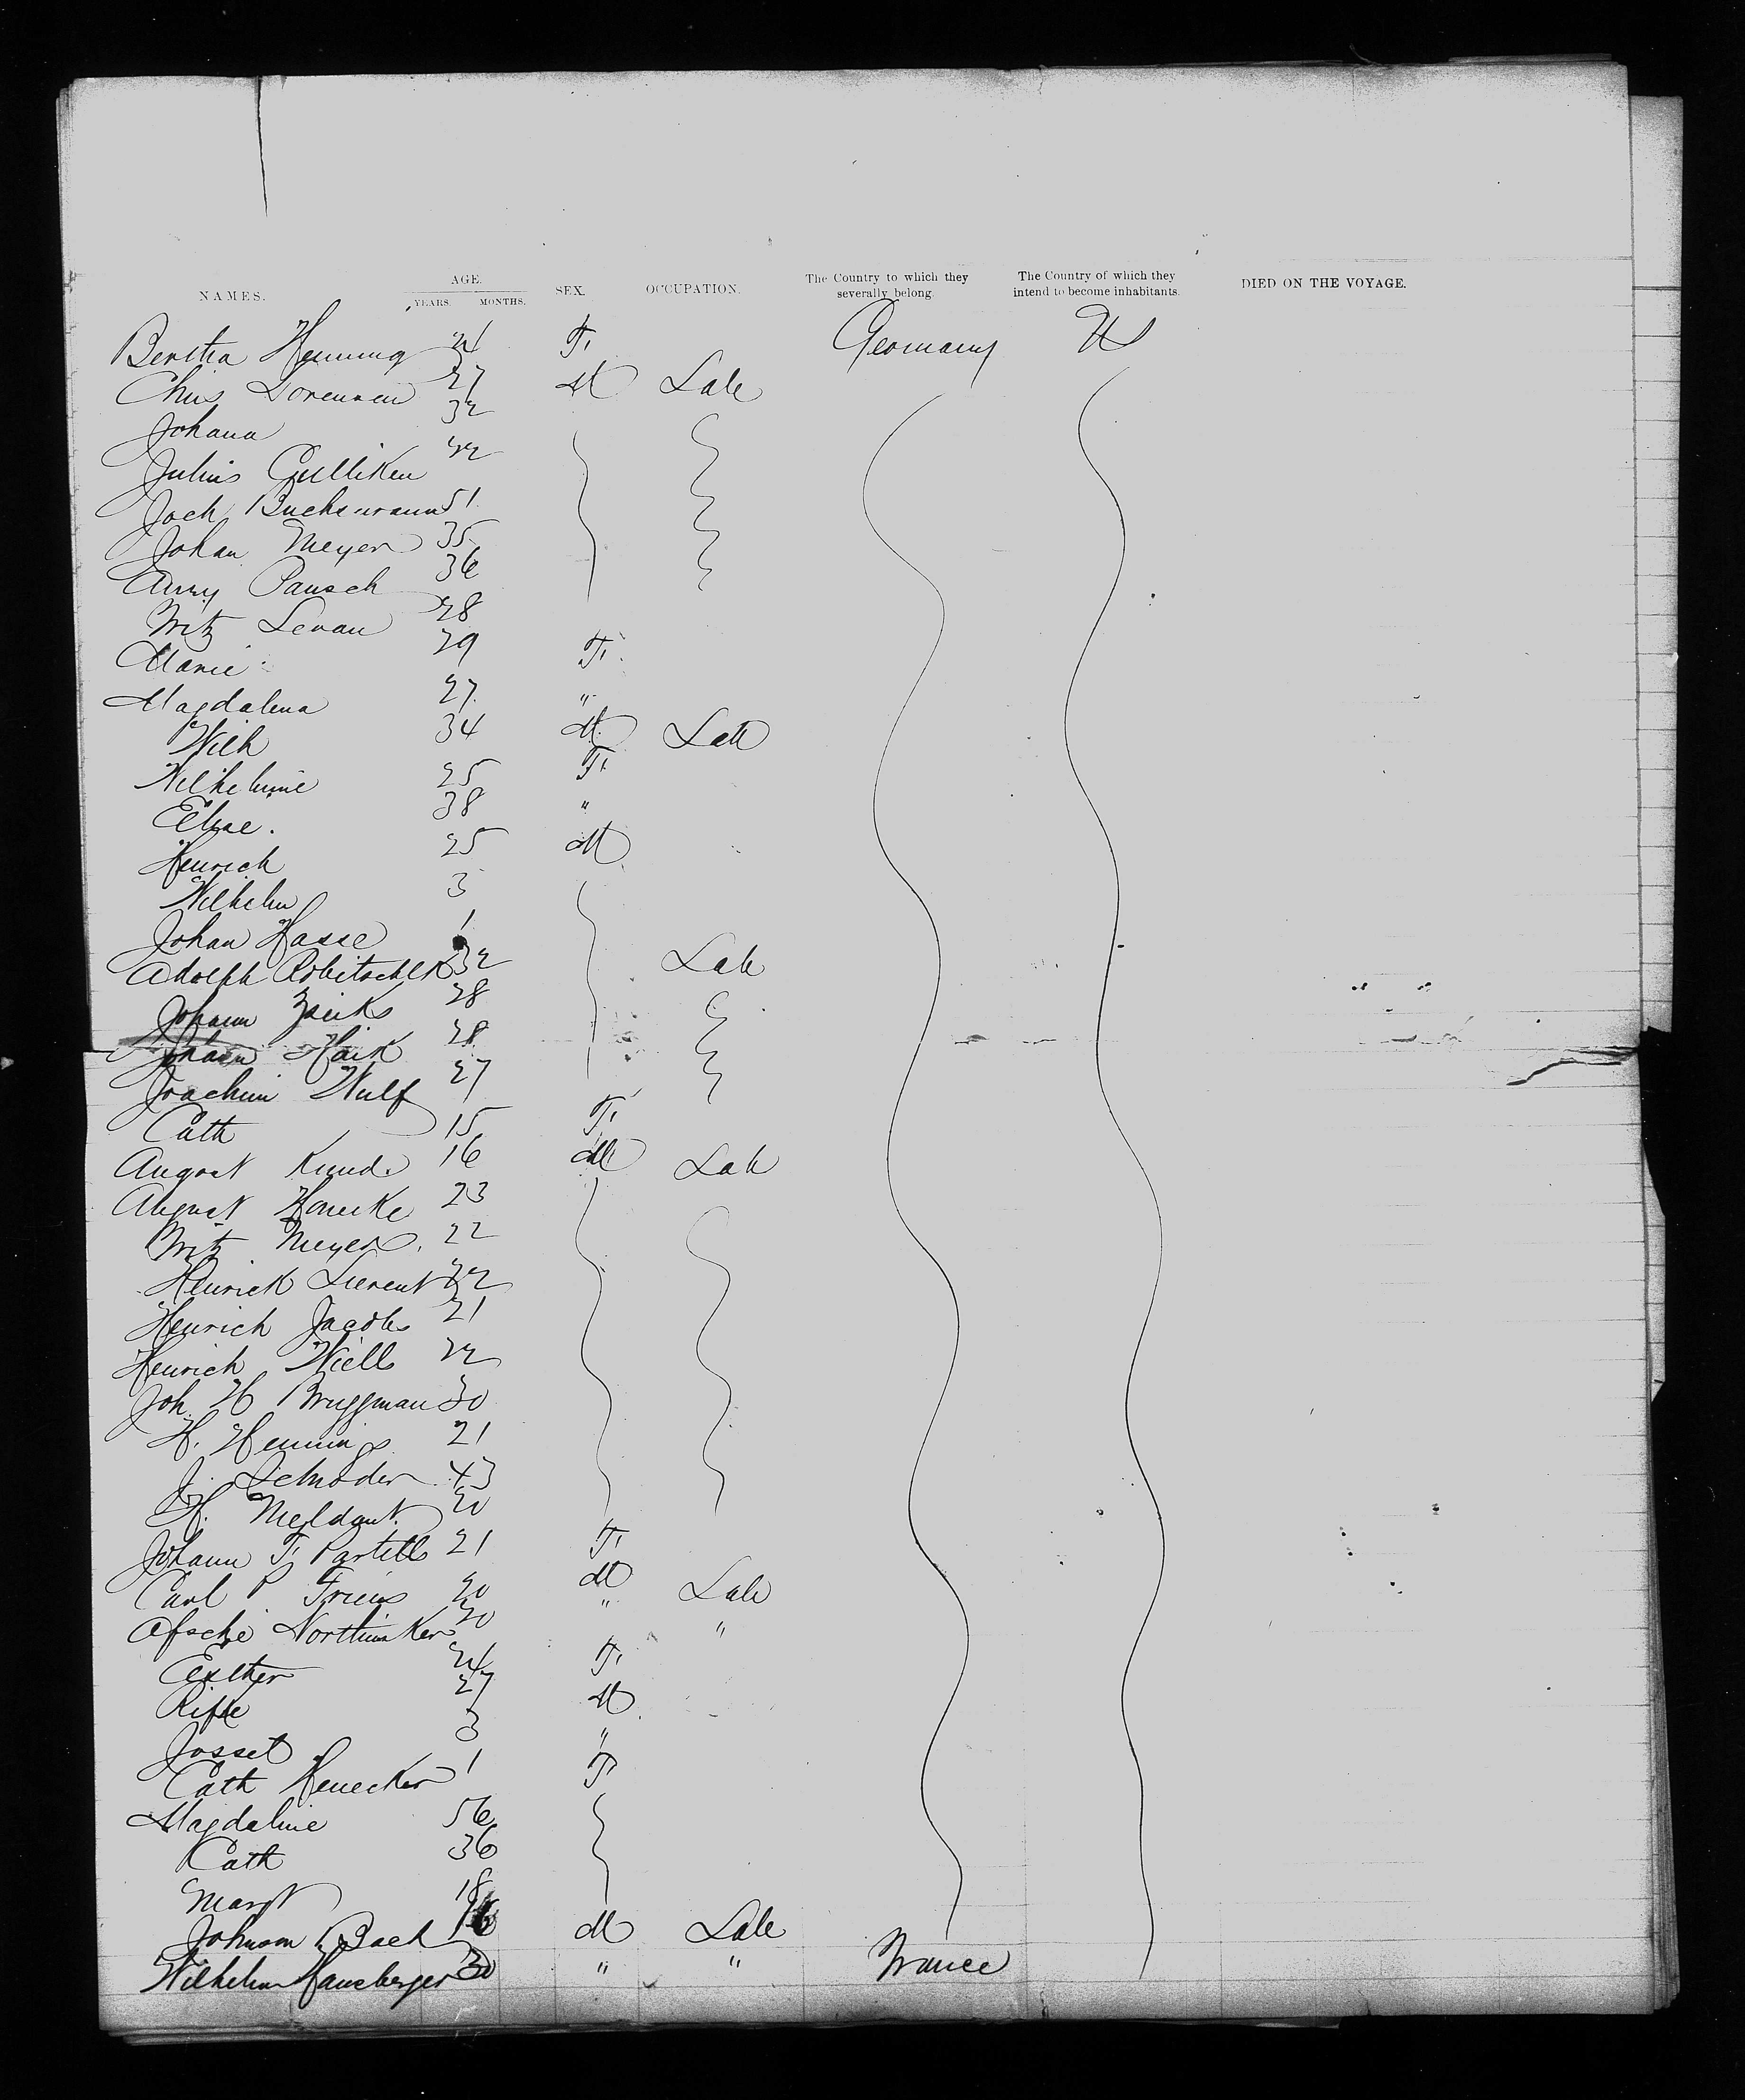 NAMES. AGE. YEARS. MONTHS. SEX. OCCUPATION. The Country to which they severally belong. The Country of which they intend to become inhabitants. DIED ON THE VOYAGE.
Bertha Henning 24 F. Germany US
Chris Lorensen 27 M Lab
Johana 32
Julius Gulliken 42
Joch Buchsmann 51
Johan Meyer 35
Pausch 36
Fritz Levan 28
Marie 29 F.
Magdalena 27 "
Wilh 34 M. Lab
Wilhelmine 25 F.
Elise. 38 "
Henrich 25 M
Wilhelm 3
Johan Hasse 1
Adolph Robitschek 32 Lab
Johann 28
Johann Haik 28
Joachim Wulf 27
Cath 15 F.
August Kund 16 M Lab
August Honeke 23
Fritz Meyer. 22
Henrick 22
Henrich Jacobs 21
Henrich Wiell 22
Joh. H Bruggman 30
H. Hennings 21
J. Schroder 43
H. 20
Johann F. Partells 21 F.
Carl P 20 M Lab
20 " "
Esther 24 F.
Rifke 27 M
Josset 3 "
Cath Henecker 1 F
Magdaline 56
Cath 36
Margt 18
Bach 16 M Lab
Wilhelm Hansberger 30 " " France